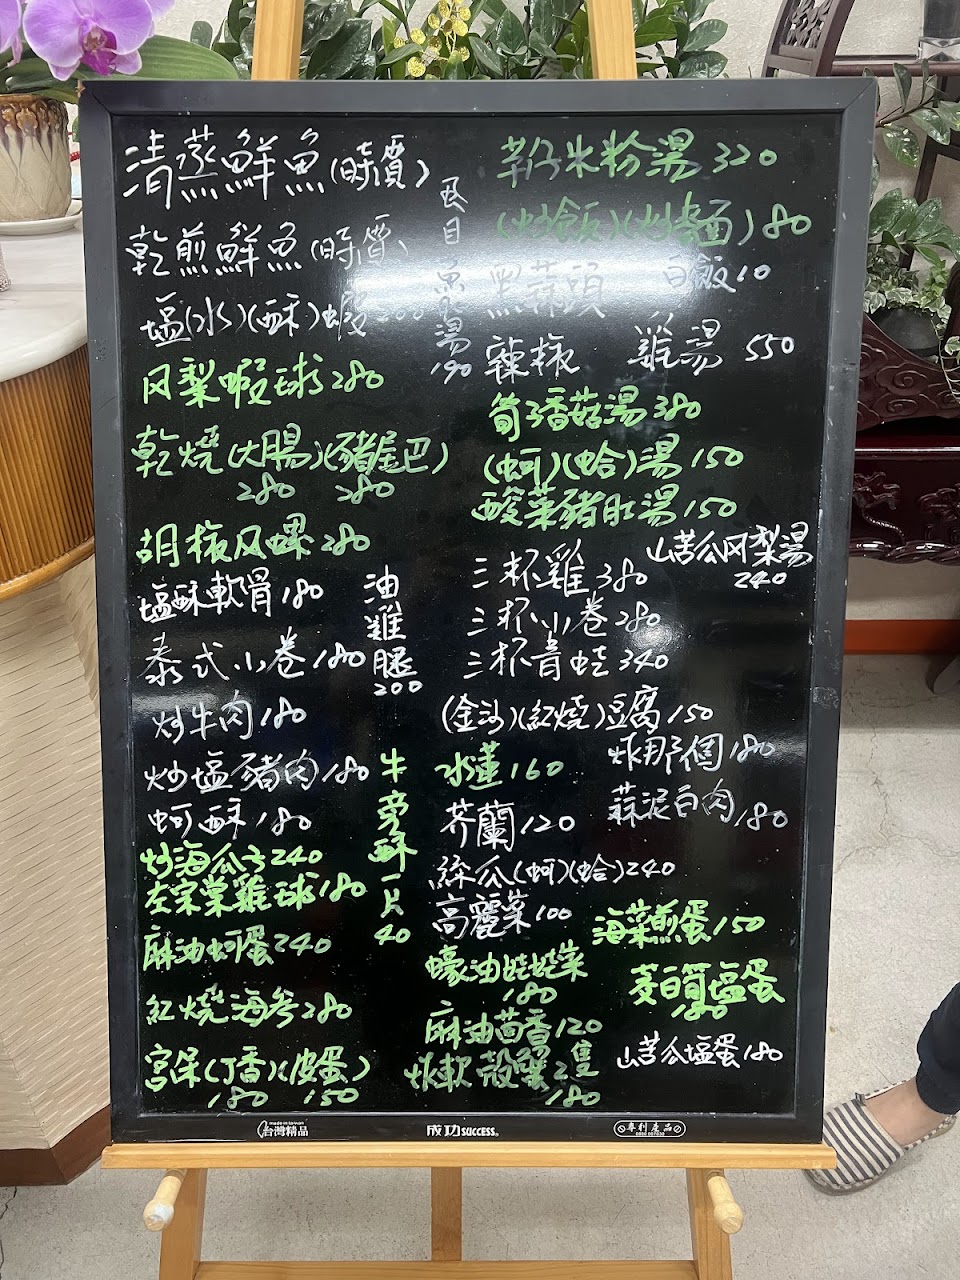 清蒸鮮魚(時價)
乾煎鮮魚(時價)
塩(水)(酥)蝦200
风梨蝦球280
乾燒(大腸)(豬尾巴)
280 280
胡椒风螺280
塩酥軟骨180
泰式小卷180
炒牛肉180
炒塩豬肉180
蚵酥180
炒海瓜子240
左宗棠雞球180
麻油蚵蛋240
紅燒海参280
宮保(丁香)(皮蛋)
180 150
油雞腿
200
牛旁酥一片
40
虱目魚湯
190
芋籽米粉湯320
(炒飯)(炒麵)80
白飯10
黑蒜頭
辣椒 雞湯 550
筍子香菇湯380
(蚵)(蛤)湯150
酸菜豬肚湯150
山苦瓜风梨湯
240
三杯雞380
三杯小卷280
三杯青蛙340
(金沙)(紅燒)豆腐150
炸那個180
蒜泥白肉180
水蓮160
芥蘭120
絲瓜(蚵)(蛤)240
高麗菜100
蠔油娃娃菜
180
麻油茴香120
炸軟殼蟹2隻
180
海菜煎蛋150
茭白筍塩蛋
180
山苦瓜塩蛋180
made in taiwan
台灣精品
成功SUCCESS®
專利產品